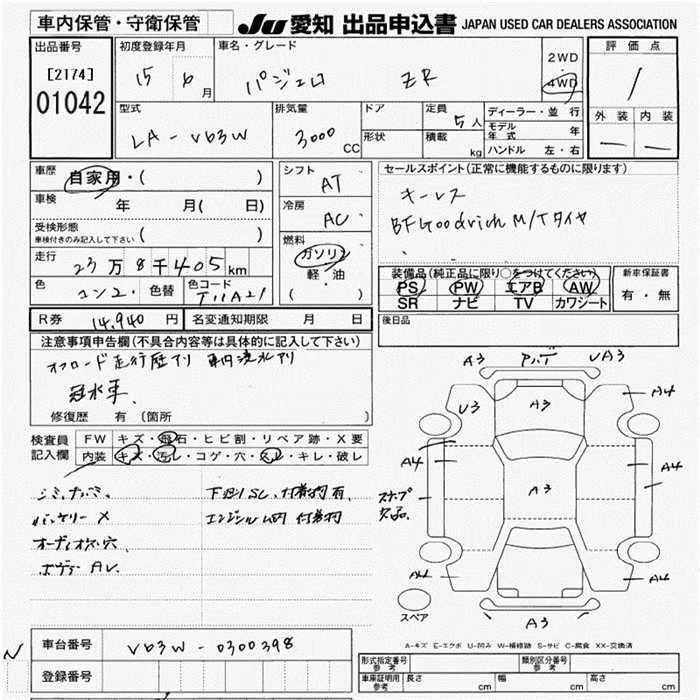 車内保管・守衛保管
JU 愛知 出品申込書 JAPAN USED CAR DEALERS ASSOCIATION
出品番号
[2174]
01042
初度登録年月
15 6月
車名・グレード
パジェロ ZR
2WD
4WD
評価点
1
外装 内装
— —
型式
LA-V63W
排気量
3000 CC
ドア
形状
定員
5人
積載
kg
ディーラー・並行
モデル年式 年
ハンドル 左・右
車歴
自家用・( )
車検
年 月( 日)
受検形態
車検付きのみ記入して下さい ( )
走行
23万8千405km
色
コン2. 色替
色コード
シフト
AT
冷房
AC
燃料
ガソリン
軽・油
( )
セールスポイント(正常に機能するものに限ります)
キーレス
BFGoodrich M/Tタイヤ
装備品(純正品に限り○をつけてください)
PS PW エアB AW
SR ナビ TV カワシート
新車保証書
有・無
R券 14,940 円
名変通知期限 月 日
後日品
注意事項申告欄(不具合内容等は具体的に記入して下さい)
オフロード走行歴アリ 車内浸水アリ
冠水車.
修復歴 有(箇所 )
検査員記入欄
FW キズ・飛石・ヒビ割・リペア跡・X要
内装 キズ・汚レ・コゲ・穴・スレ・キレ・破レ
下廻りSC.付着物有.
バッテリーX
エンジンルーム内 付着物
オーディオ穴
A3 UA3
U3 A3 A4
A4 A3 A4
A4
欠品.
A4 A4
スペア
A3
A-キズ E-エクボ U-凹み W-補修跡 S-サビ C-腐食 XX-交換済
N
車台番号 V63W-0300398
登録番号
形式指定番号 参考
類別区分番号 参考
車庫証明用 参考
長さ cm
幅 cm
高さ cm